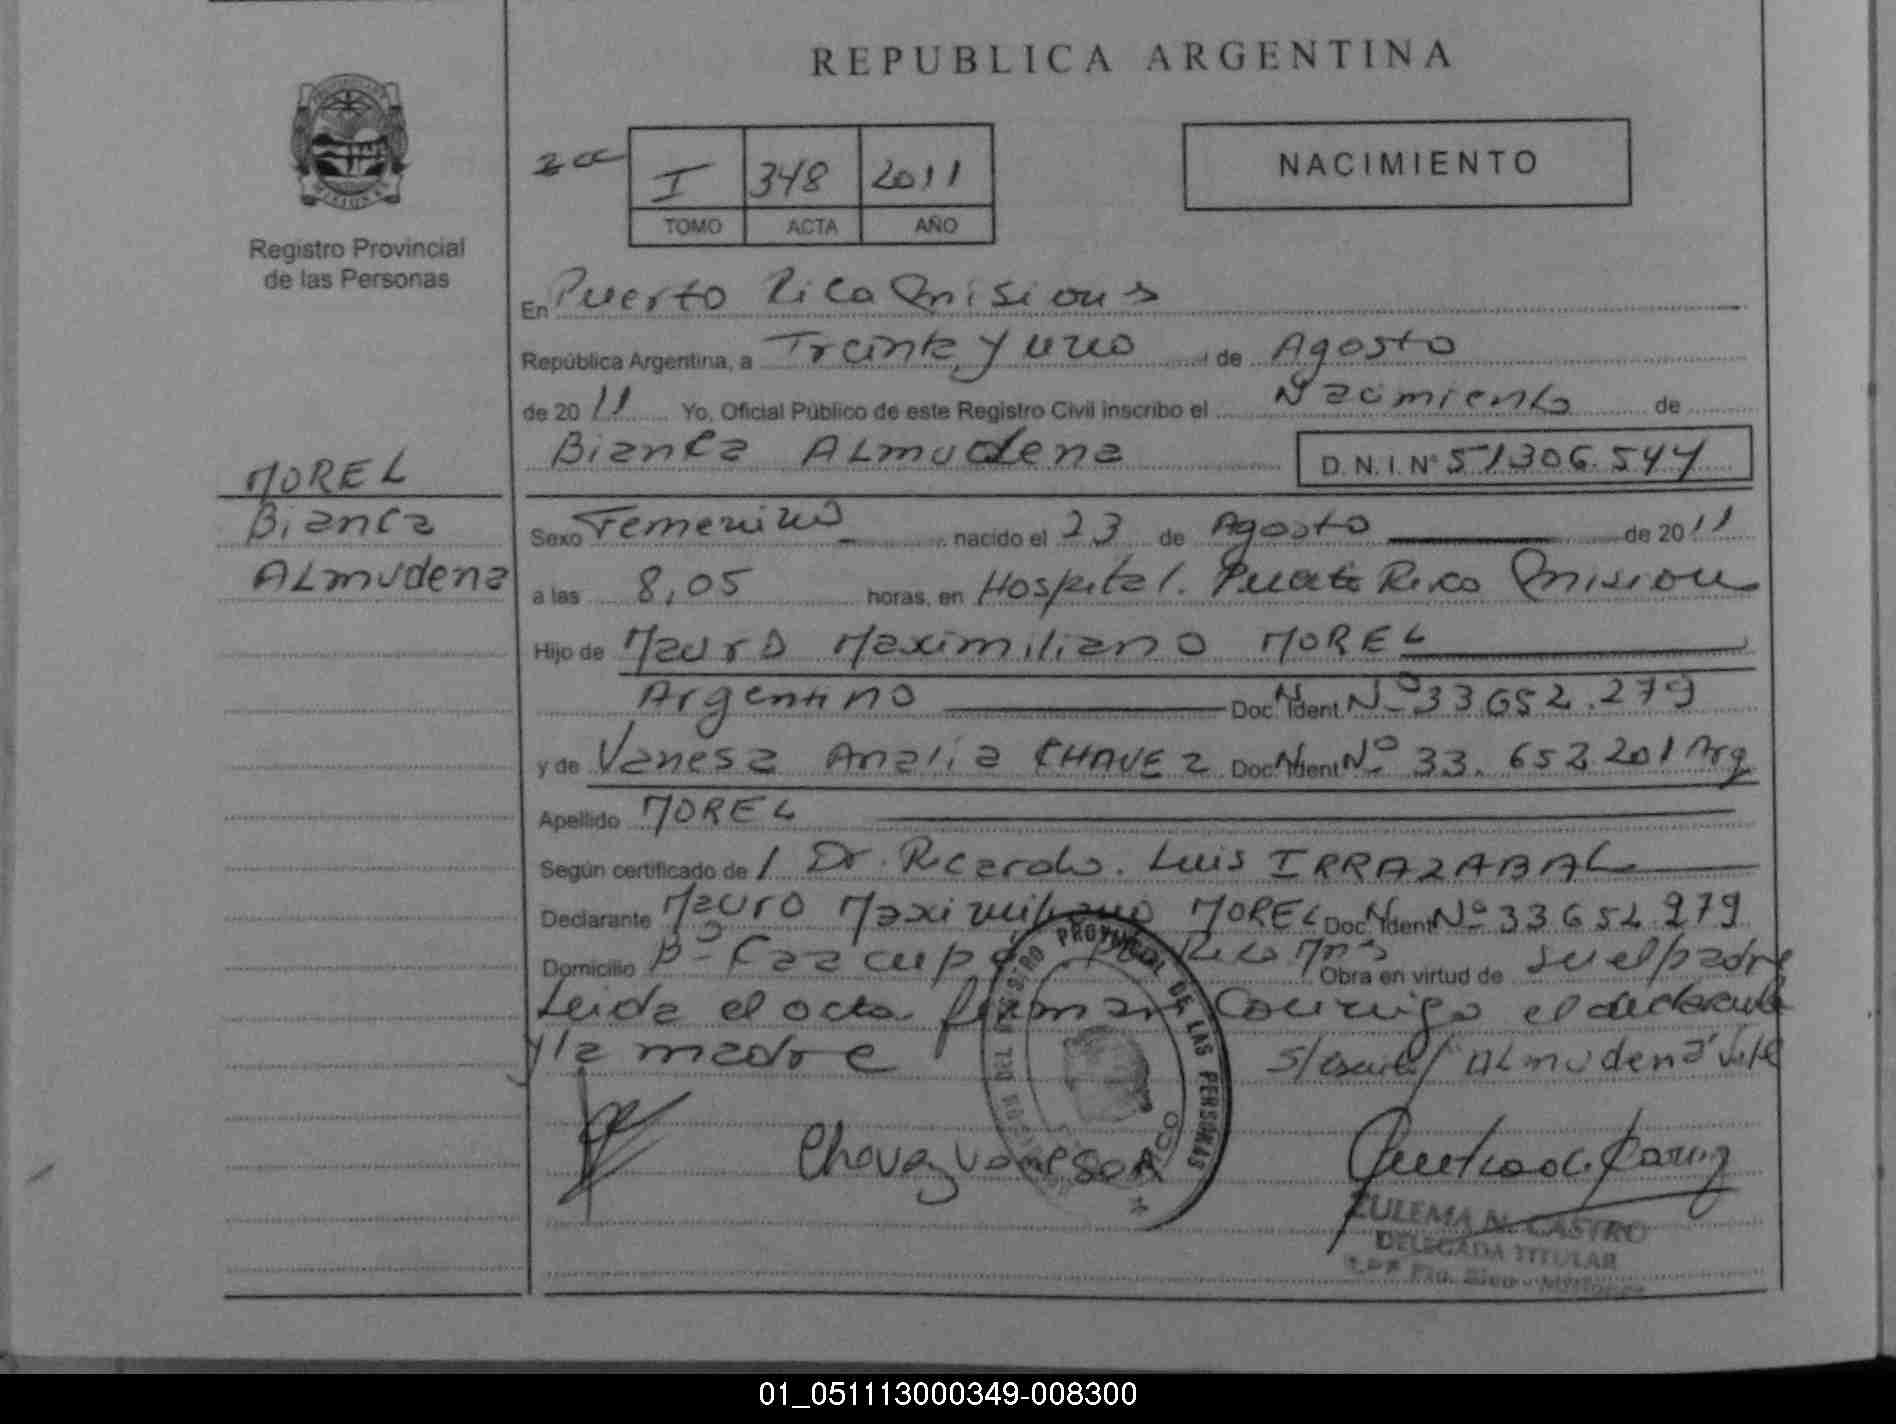 REPUBLICA ARGENTINA
Registro Provincial
de las Personas
I 348 2011
TOMO ACTA AÑO
NACIMIENTO
En Puerto Rico Misiones
República Argentina, a Treinta y uno de Agosto
de 2011 Yo, Oficial Público de este Registro Civil inscribo el Nacimiento de
Bianca ALmudena D.N.I. Nº 51306.544
MOREL
Bianca
ALmudena
Sexo Femenino nacido el 23 de Agosto de 2011
a las 8,05 horas, en Hospital. Puerto Rico Misiones
Hijo de Mauro Maximiliano MOREL
Argentino Doc. N. Ident. Nº 33652.279
y de Vanesa Analia CHAVEZ Doc. N. Ident Nº 33.652201 Arg
Apellido MOREL
Según certificado de / Dr. Ricardo. Luis IRRAZABAL
Declarante Mauro Maximiliano MOREL Doc. N. Ident Nº 33652.279
Domicilio Bº Caacupé Rico Mnes Obra en virtud de ser el padre
Leida el acta firman Conmigo el declarante
y la madre S/ ALmudena Vale
REGISTRO PROVINCIAL DE LAS PERSONAS
Chavez Vanesa A
ZULEMA N. CASTRO
DELEGADA TITULAR
Pto. Rico - Misiones
01_051113000349-008300